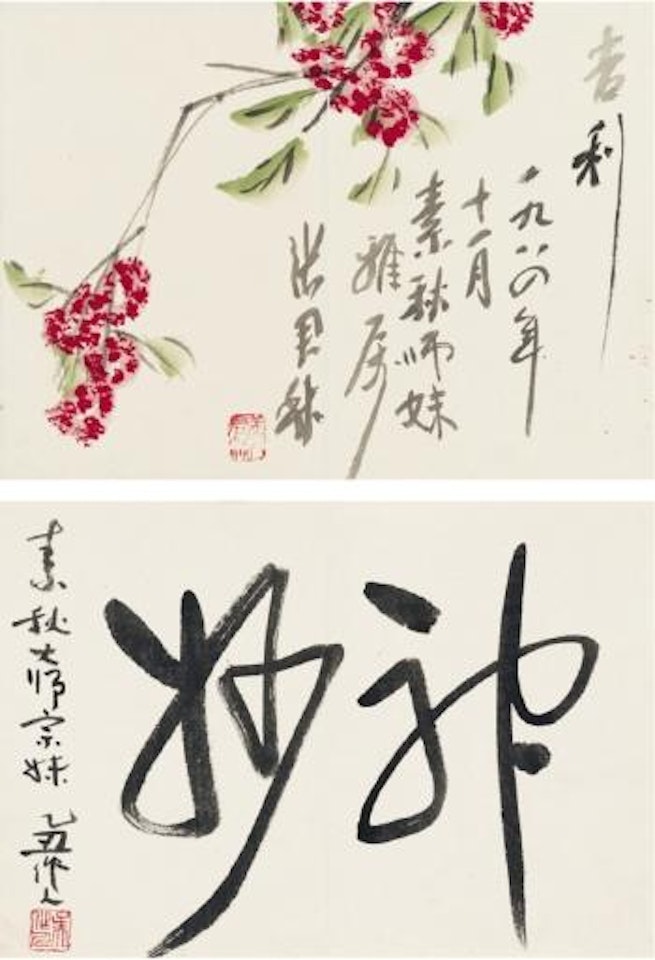 吉利
一九八四年
十一月
素秋师妹
雅属
张君秋
神妙
素秋大师宗妹 乙丑作人